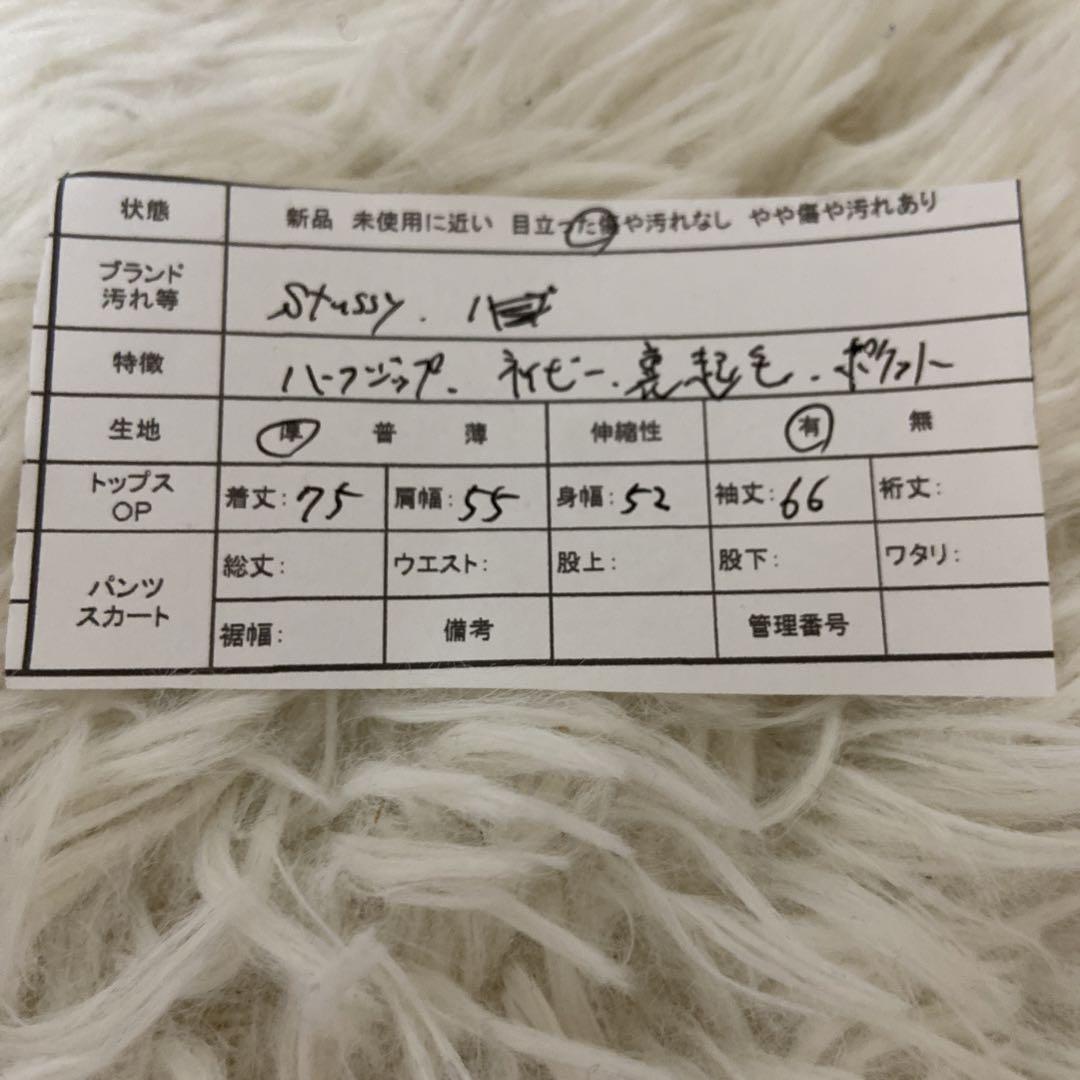 状態 新品 未使用に近い 目立った傷や汚れなし やや傷や汚れあり
ブランド
汚れ等 Stussy.
特徴 ハーフジップ. ネイビー. 裏起毛. ポケット
生地 厚 普 薄 伸縮性 有 無
トップス
OP 着丈:75 肩幅:55 身幅:52 袖丈:66 裄丈:
パンツ
スカート 総丈: ウエスト: 股上: 股下: ワタリ:
裾幅: 備考 管理番号